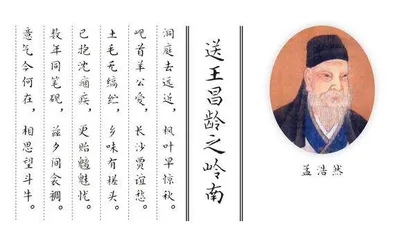 送王昌龄之岭南
孟浩然
洞庭去远近，枫叶早惊秋。
岘首羊公爱，长沙贾谊愁。
土毛无缟纻，乡味有槎头。
已抱沈痼疾，更贻魑魅忧。
数年同笔砚，兹夕间衾裯。
意气今何在，相思望斗牛。